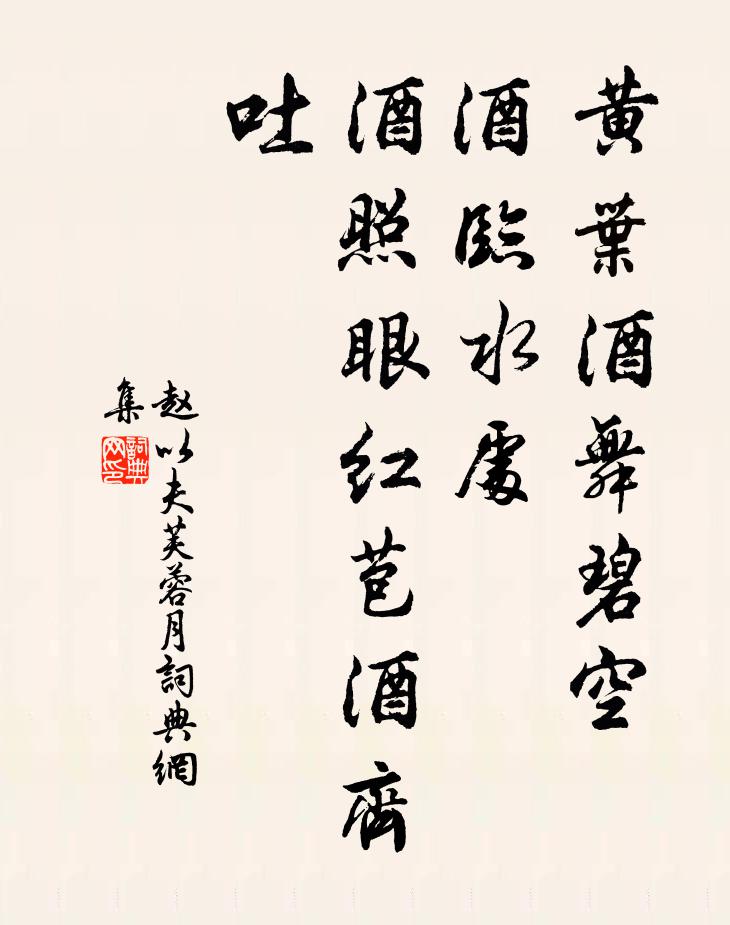 黃葉酒舞碧空
酒臨水處
酒照眼紅苞酒齊
吐
赵以夫芙蓉月詞典網
集
詞典
网印